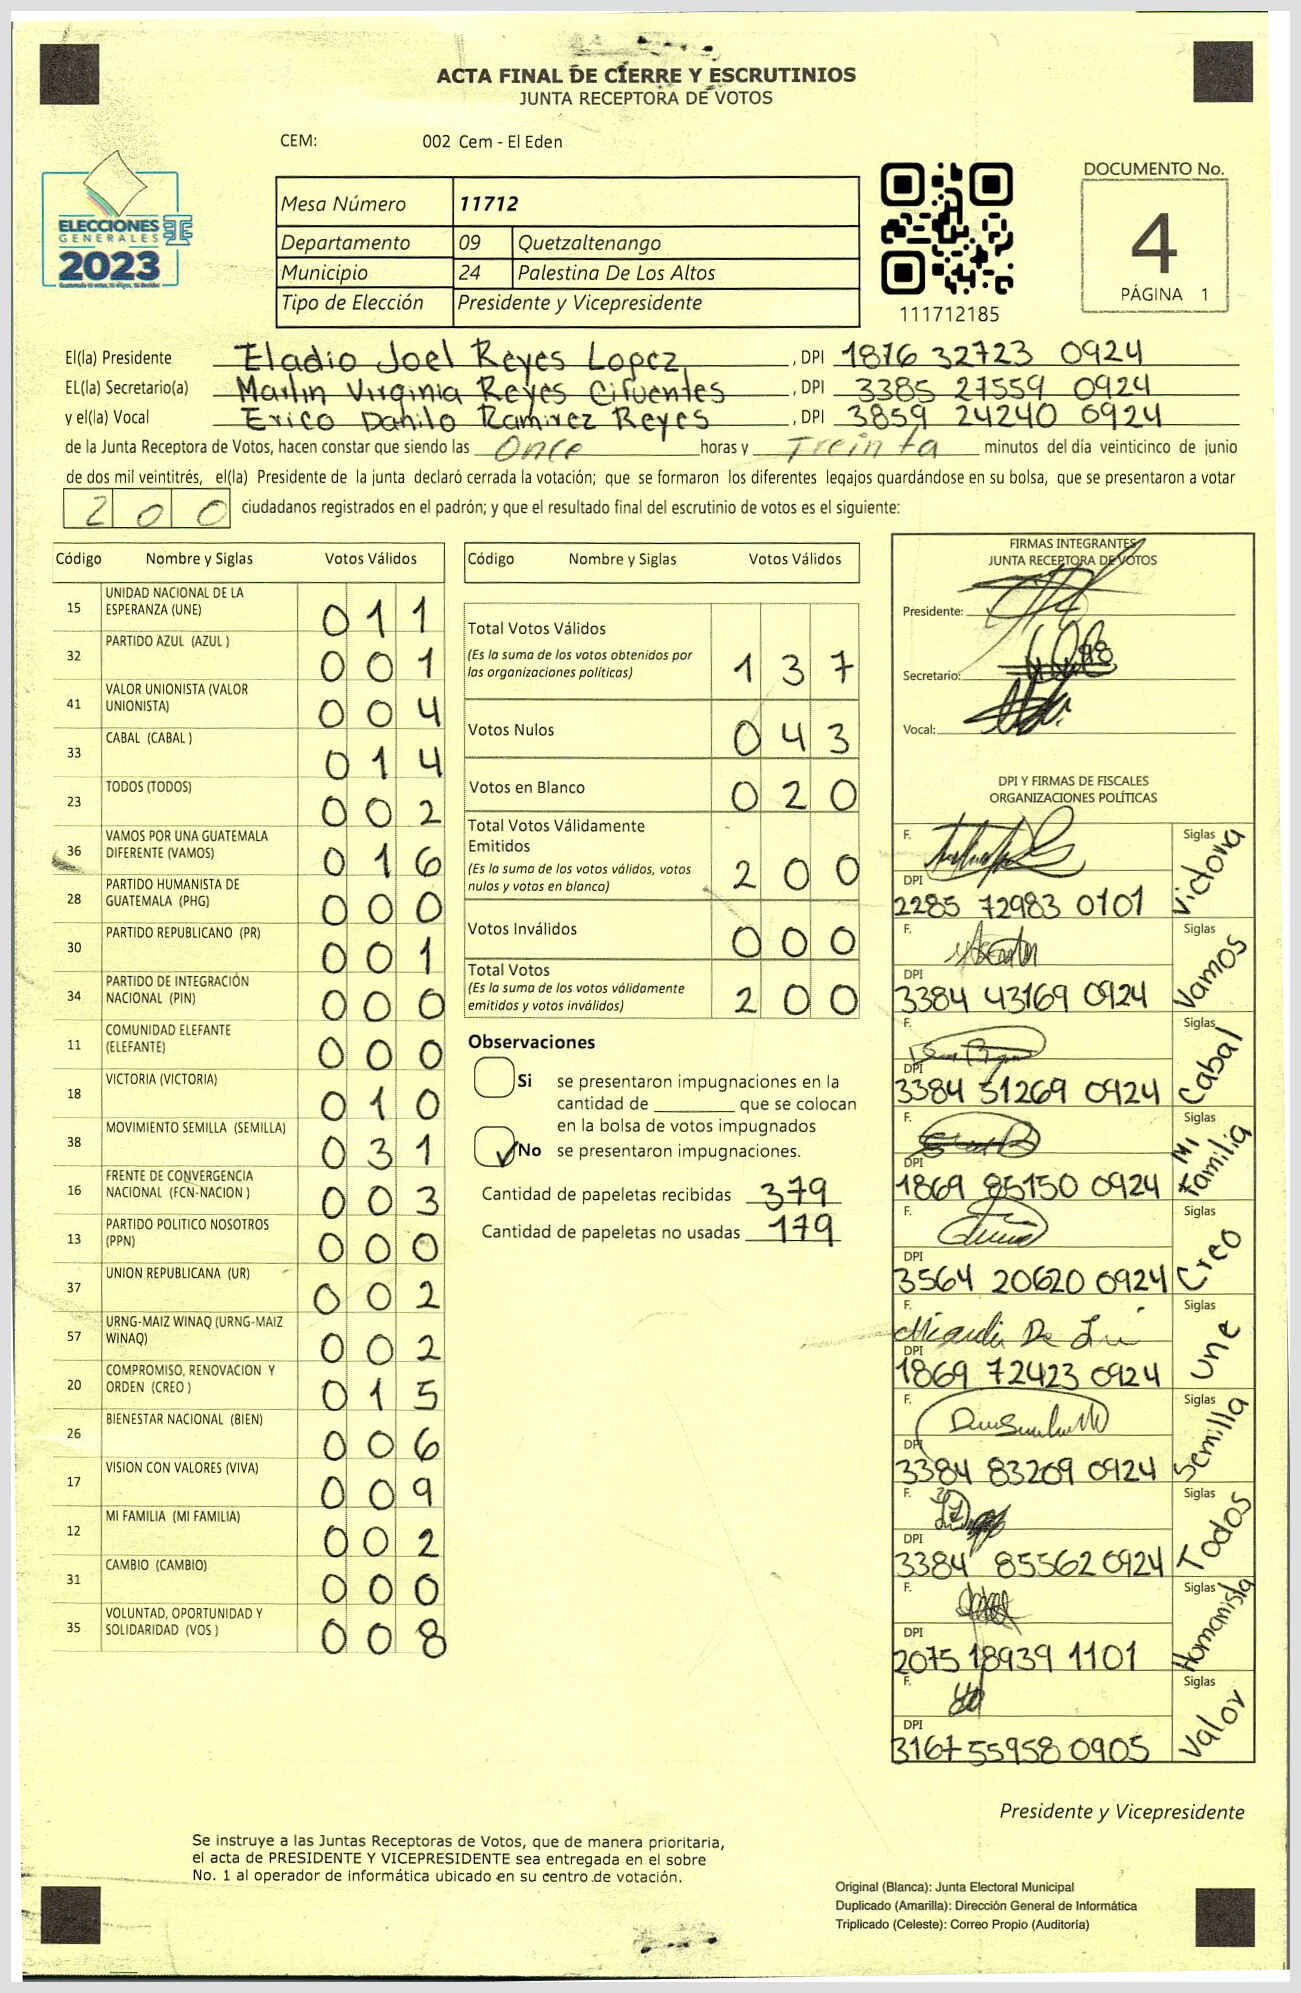 ACTA FINAL DE CIERRE Y ESCRUTINIOS
JUNTA RECEPTORA DE VOTOS
CEM: 002 Cem - El Eden
ELECCIONES
GENERALES
2023
Mesa Número 11712
Departamento 09 Quetzaltenango
Municipio 24 Palestina De Los Altos
Tipo de Elección Presidente y Vicepresidente
111712185
DOCUMENTO No.
4
PÁGINA 1
El(la) Presidente Eladio Joel Reyes Lopez, DPI 1876 32723 0924
EL(la) Secretario(a) Marlin Virginia Reyes Cifuentes, DPI 3385 27559 0924
y el(la) Vocal Erico Danilo Ramirez Reyes, DPI 3859 24240 0924
de la Junta Receptora de Votos, hacen constar que siendo las Once horas y Treinta minutos del día veinticinco de junio
de dos mil veintitrés, el(la) Presidente de la junta declaró cerrada la votación; que se formaron los diferentes legajos guardándose en su bolsa, que se presentaron a votar
200 ciudadanos registrados en el padrón; y que el resultado final del escrutinio de votos es el siguiente:
Código Nombre y Siglas Votos Válidos
15 UNIDAD NACIONAL DE LA ESPERANZA (UNE) 011
32 PARTIDO AZUL (AZUL ) 001
41 VALOR UNIONISTA (VALOR UNIONISTA) 004
33 CABAL (CABAL ) 014
23 TODOS (TODOS) 002
36 VAMOS POR UNA GUATEMALA DIFERENTE (VAMOS) 016
28 PARTIDO HUMANISTA DE GUATEMALA (PHG) 000
30 PARTIDO REPUBLICANO (PR) 001
34 PARTIDO DE INTEGRACIÓN NACIONAL (PIN) 000
11 COMUNIDAD ELEFANTE (ELEFANTE) 000
18 VICTORIA (VICTORIA) 010
38 MOVIMIENTO SEMILLA (SEMILLA) 031
16 FRENTE DE CONVERGENCIA NACIONAL (FCN-NACION ) 003
13 PARTIDO POLITICO NOSOTROS (PPN) 000
37 UNION REPUBLICANA (UR) 002
57 URNG-MAIZ WINAQ (URNG-MAIZ WINAQ) 002
20 COMPROMISO, RENOVACION Y ORDEN (CREO ) 015
26 BIENESTAR NACIONAL (BIEN) 006
17 VISION CON VALORES (VIVA) 009
12 MI FAMILIA (MI FAMILIA) 002
31 CAMBIO (CAMBIO) 000
35 VOLUNTAD, OPORTUNIDAD Y SOLIDARIDAD (VOS ) 008
Código Nombre y Siglas Votos Válidos
Total Votos Válidos
(Es la suma de los votos obtenidos por
las organizaciones políticas) 137
Votos Nulos 043
Votos en Blanco 020
Total Votos Válidamente
Emitidos
(Es la suma de los votos válidos, votos
nulos y votos en blanco) 200
Votos Inválidos 000
Total Votos
(Es la suma de los votos válidamente
emitidos y votos inválidos) 200
Observaciones
Si se presentaron impugnaciones en la
cantidad de ________ que se colocan
en la bolsa de votos impugnados
No se presentaron impugnaciones.
Cantidad de papeletas recibidas 379
Cantidad de papeletas no usadas 179
FIRMAS INTEGRANTES
JUNTA RECEPTORA DE VOTOS
Presidente:
Secretario:
Vocal:
DPI Y FIRMAS DE FISCALES
ORGANIZACIONES POLÍTICAS
F. Siglas Victoria
DPI
2285 72983 0101
F. Siglas Vamos
DPI
3384 43169 0924
F. Siglas Cabal
DPI
3384 51269 0924
F. Siglas Mi Familia
DPI
1869 85150 0924
F. Siglas Creo
DPI
3564 20620 0924
F. Siglas Une
DPI
1869 72423 0924
F. Siglas Semilla
DPI
3384 83209 0924
F. Siglas Todos
DPI
3384 85562 0924
F. Siglas Humanista
DPI
2075 18939 1101
F. Siglas Valor
DPI
3167 55958 0905
Presidente y Vicepresidente
Se instruye a las Juntas Receptoras de Votos, que de manera prioritaria,
el acta de PRESIDENTE Y VICEPRESIDENTE sea entregada en el sobre
No. 1 al operador de informática ubicado en su centro de votación.
Original (Blanca): Junta Electoral Municipal
Duplicado (Amarilla): Dirección General de Informática
Triplicado (Celeste): Correo Propio (Auditoría)